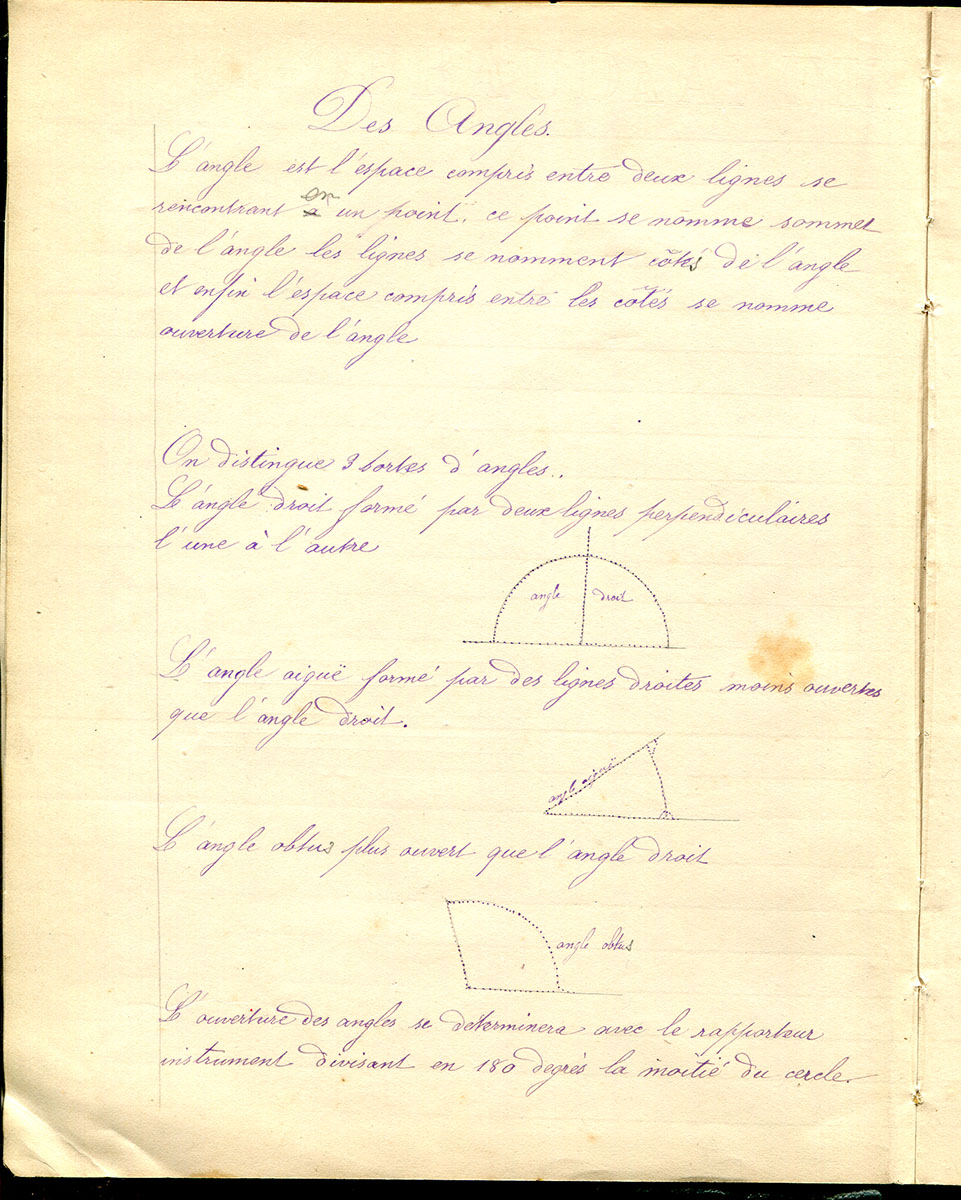 Des Angles.
L'angle est l'éspace compris entre deux lignes se
rencontrant en un point. ce point se nomme sommet
de l'angle les lignes se nomment côtés de l'angle
et enfin l'éspace compris entre les côtés se nomme
ouverture de l'angle
On distingue 3 sortes d'angles..
L'angle droit formé par deux lignes perpendiculaires
l'une à l'autre
angle droit
L'angle aiguë formé par des lignes droites moins ouvertes
que l'angle droit.
angle aiguë
L'angle obtus plus ouvert que l'angle droit
angle obtus
L'ouverture des angles se déterminera avec le rapporteur
instrument divisant en 180 degrés la moitié du cercle.